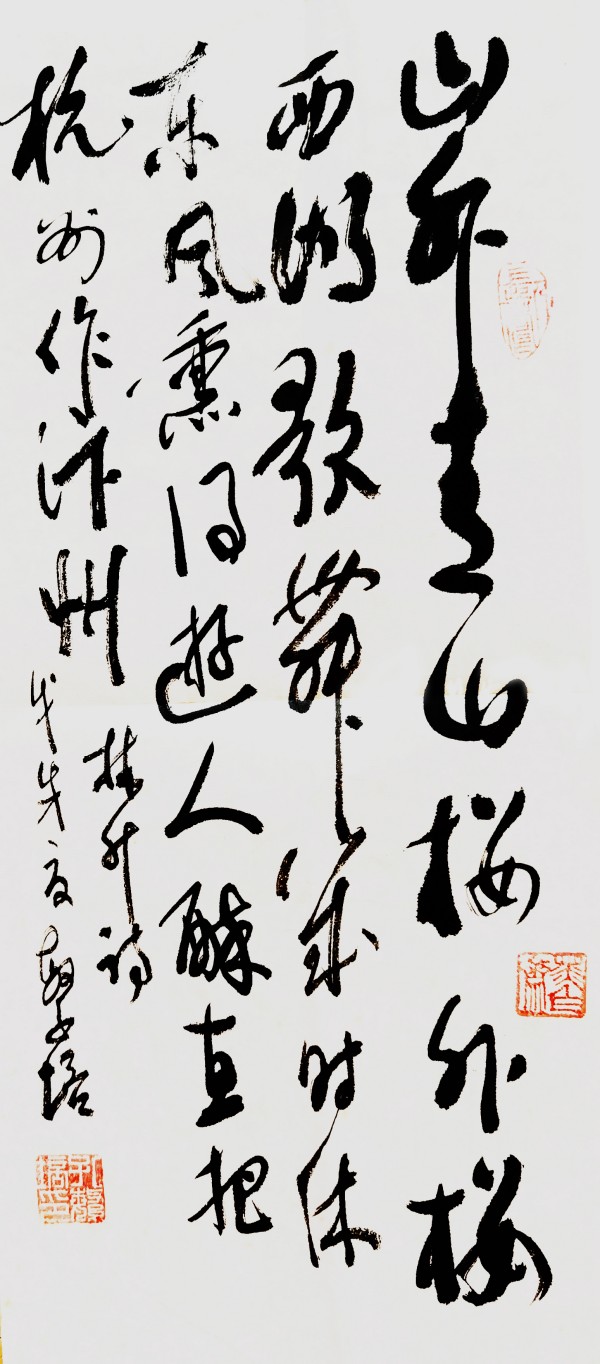 山外青山楼外楼
西湖歌舞幾时休
东风熏得遊人醉直把
杭州作汴州
林升诗
戊戌夏